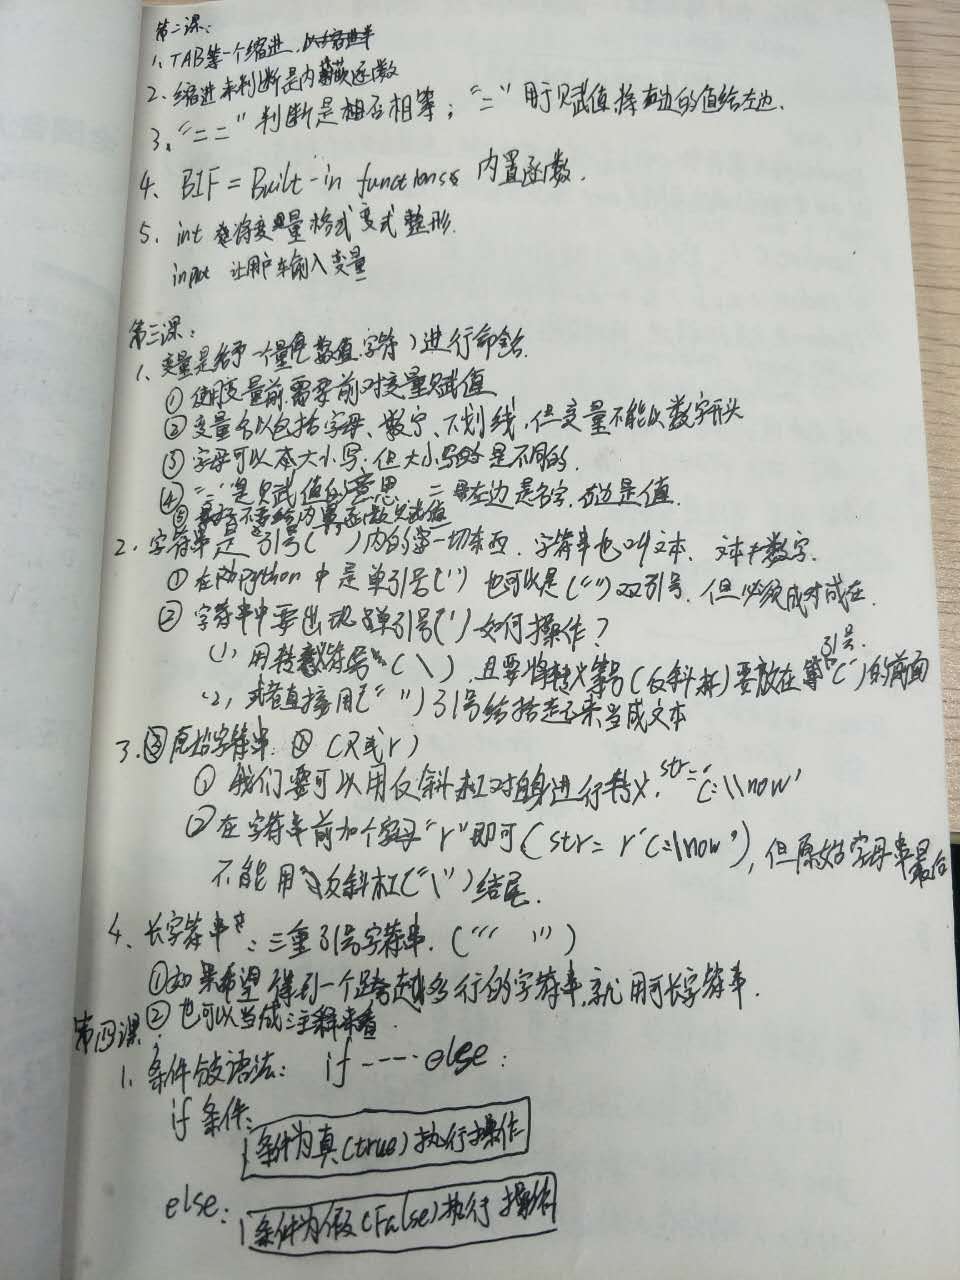 第二课:
1、TAB等一个缩进.
2、缩进来判断是内嵌函数
3、"=="判断是否相等；"="用于赋值,将右边的值给左边.
4、BIF = Built-in functions 内置函数.
5、int 将变量格式变成整形.
input 让用户输入变量
第三课:
1、变量是给予一个量(数值.字符)进行命名.
① 使用变量前需要前对变量赋值
② 变量名以包括字母、数字、下划线,但变量不能以数字开头
③ 字母可以大小写.但大小写是不同的.
④ "="是赋值的意思. = 左边是名字,右边是值.
⑤ 最好不要给内置函数赋值
2、字符串是引号( )内的一切东西. 字符串也叫文本. 文本≠数字.
① 在Python 中是单引号('') 也可以是("")双引号. 但必须成对成在.
② 字符串中要出现单引号(')如何操作?
(1) 用转义符号(\) 且要将转义符号(反斜杠)要放在引号(')的前面
(2) 或者直接用(" ")引号给括起来当成文本
3、原始字符串 (R或r)
① 我们可以用反斜杠对自身进行转义. str='C:\\now'
② 在字符串前加个字母"r"即可(str= r'C:\now'),但原始字母串最后
不能用反斜杠("\")结尾.
4、长字符串: 三重引号字符串. (''' ''')
①如果希望得到一个跨越多行的字符串,就用可长字符串.
② 也可以当成注释来看.
第四课:
1、条件分支语法: if ---- else:
if 条件:
条件为真(true)执行操作
else:
条件为假(False)执行操作